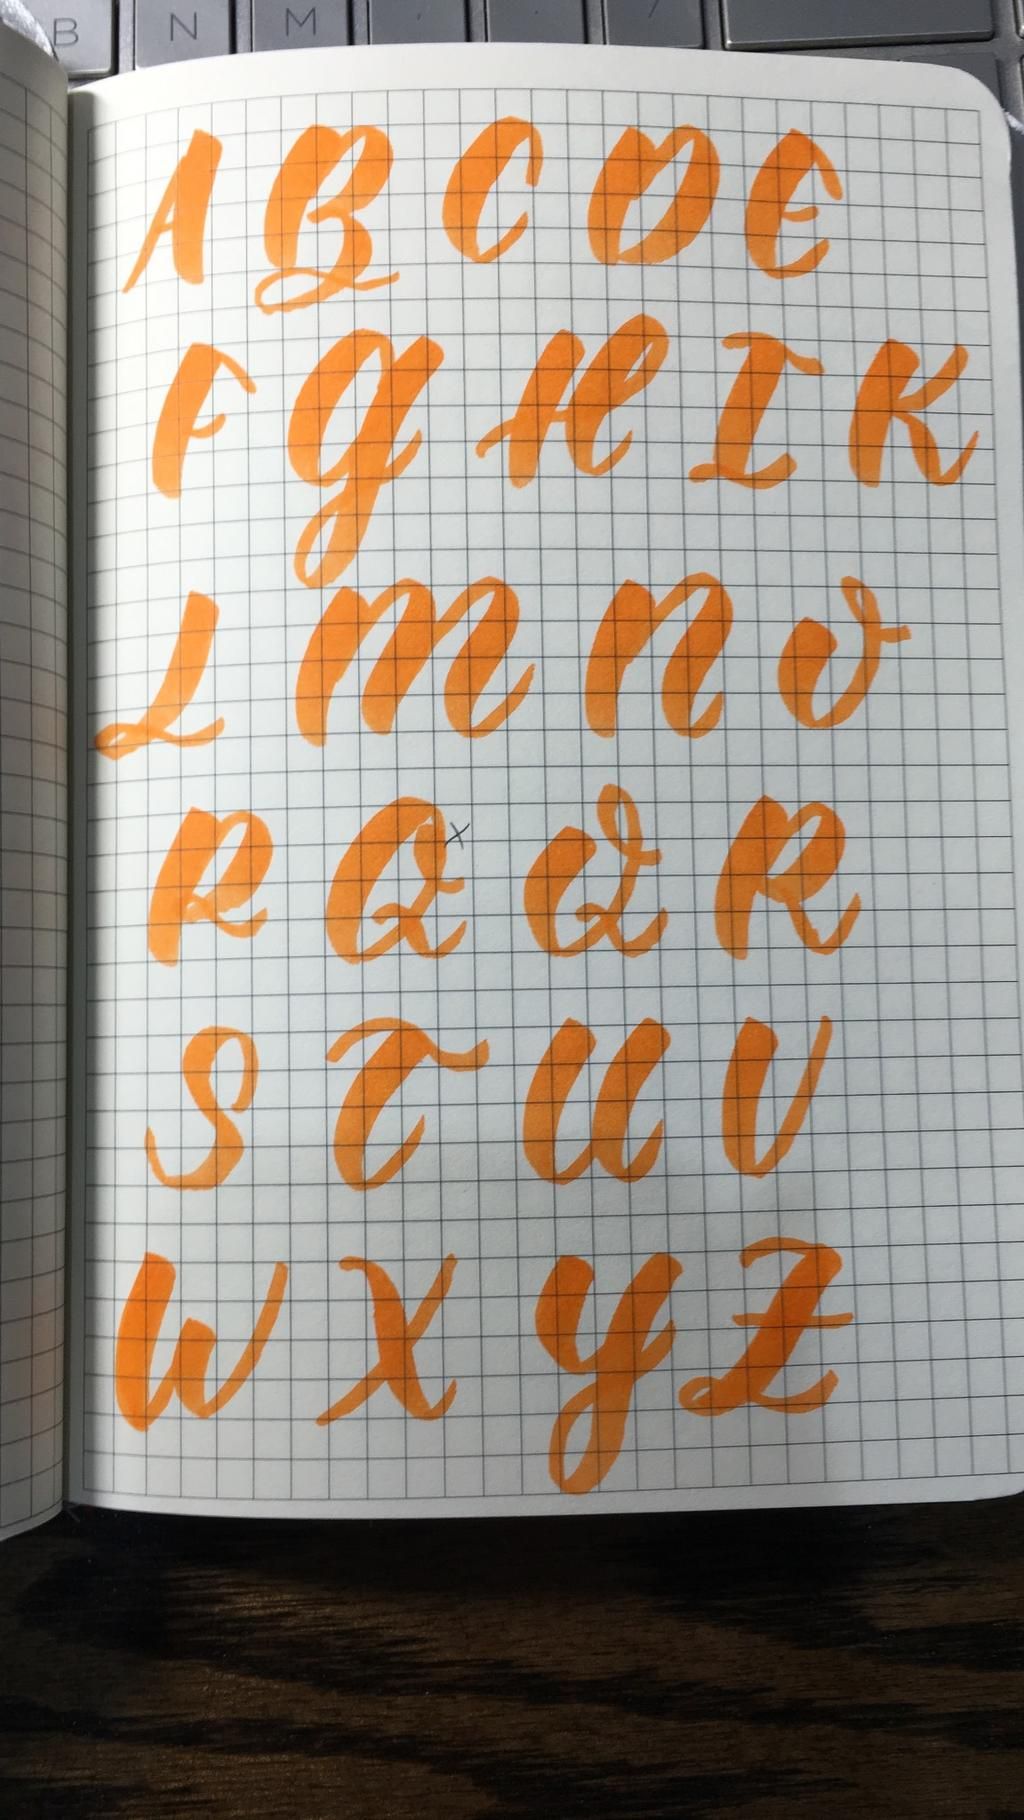 B N M
A B C D E
F G H I K
L M N O
R Q x Q R
S T U V
W X Y Z